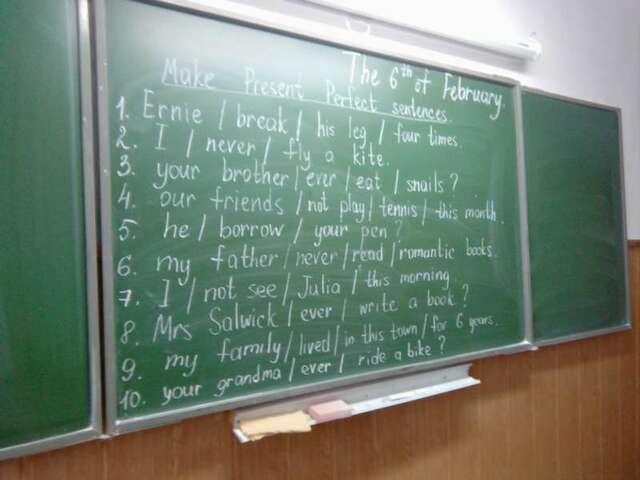 The 6th of February.
Make Present Perfect sentences.
1. Ernie / break / his leg / four times.
2. I / never / fly a kite.
3. your brother / ever / eat / snails?
4. our friends / not play / tennis / this month.
5. he / borrow / your pen?
6. my father / never / read / romantic books.
7. I / not see / Julia / this morning
8. Mrs Salwick / ever / write a book?
9. my family / lived / in this town / for 6 years.
10. your grandma / ever / ride a bike?